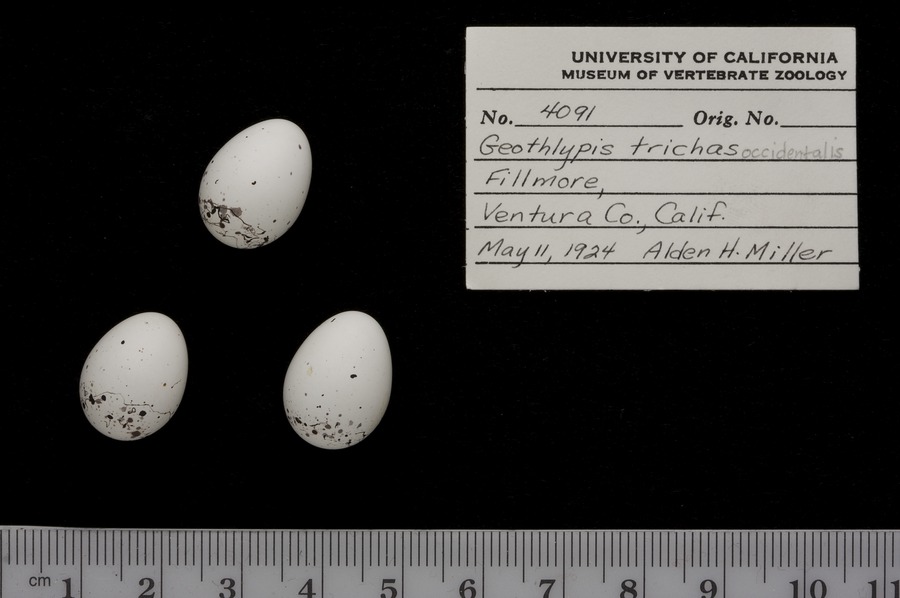 UNIVERSITY OF CALIFORNIA
MUSEUM OF VERTEBRATE ZOOLOGY
No. 4091 Orig. No.
Geothlypis trichas occidentalis
Fillmore,
Ventura Co., Calif.
May 11, 1924 Alden H. Miller
cm 1 2 3 4 5 6 7 8 9 10 11